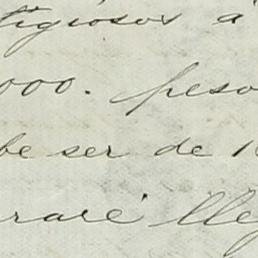 tigiosos á
000. peso
be ser de 1
raré lleg